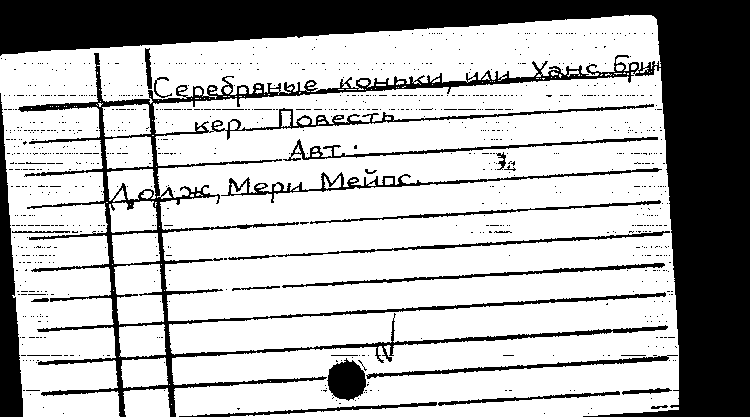 Серебряные коньки, или Ханс Брин
кер. Повесть.
Авт.:
Додж, Мери Мейпс.